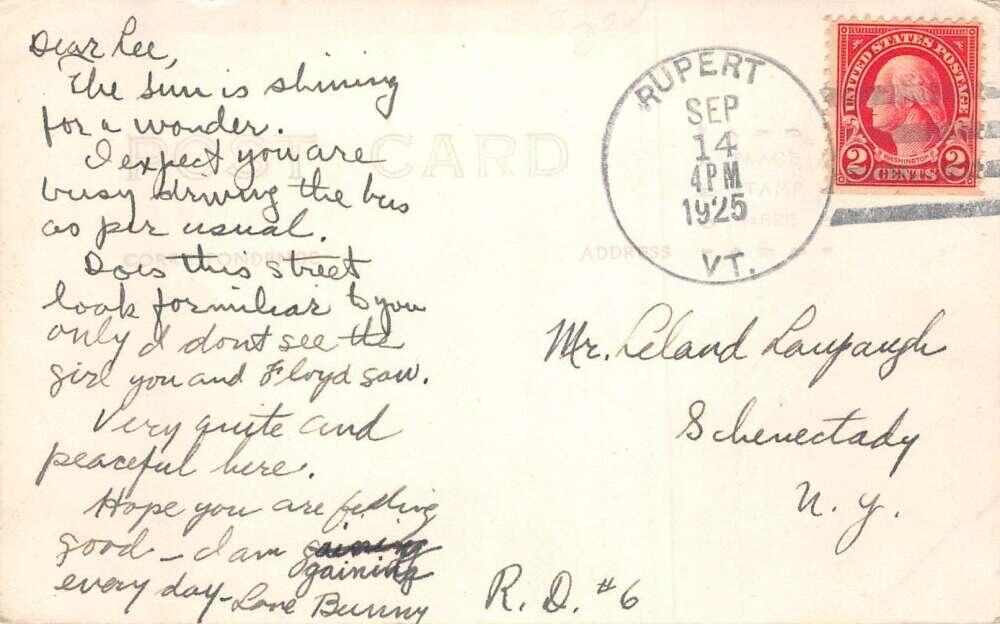 Dear Lee,
The sun is shining
for a wonder.
I expect you are
busy driving the bus
as per usual.
Does this street
look formiliar to you
only I dont see the
girl you and Floyd saw.
Very quite and
peaceful here.
Hope you are feeling
good - I am gaining
gaining
every day - Love Bunny
POST CARD
CORRESPONDENCE
ADDRESS
PLACE
STAMP
HERE
RUPERT
SEP
14
4 PM
1925
VT.
UNITED STATES POSTAGE
WASHINGTON
2 CENTS 2
Mr. Leland Laupaugh
Schenectady
N. Y.
R. D. #6